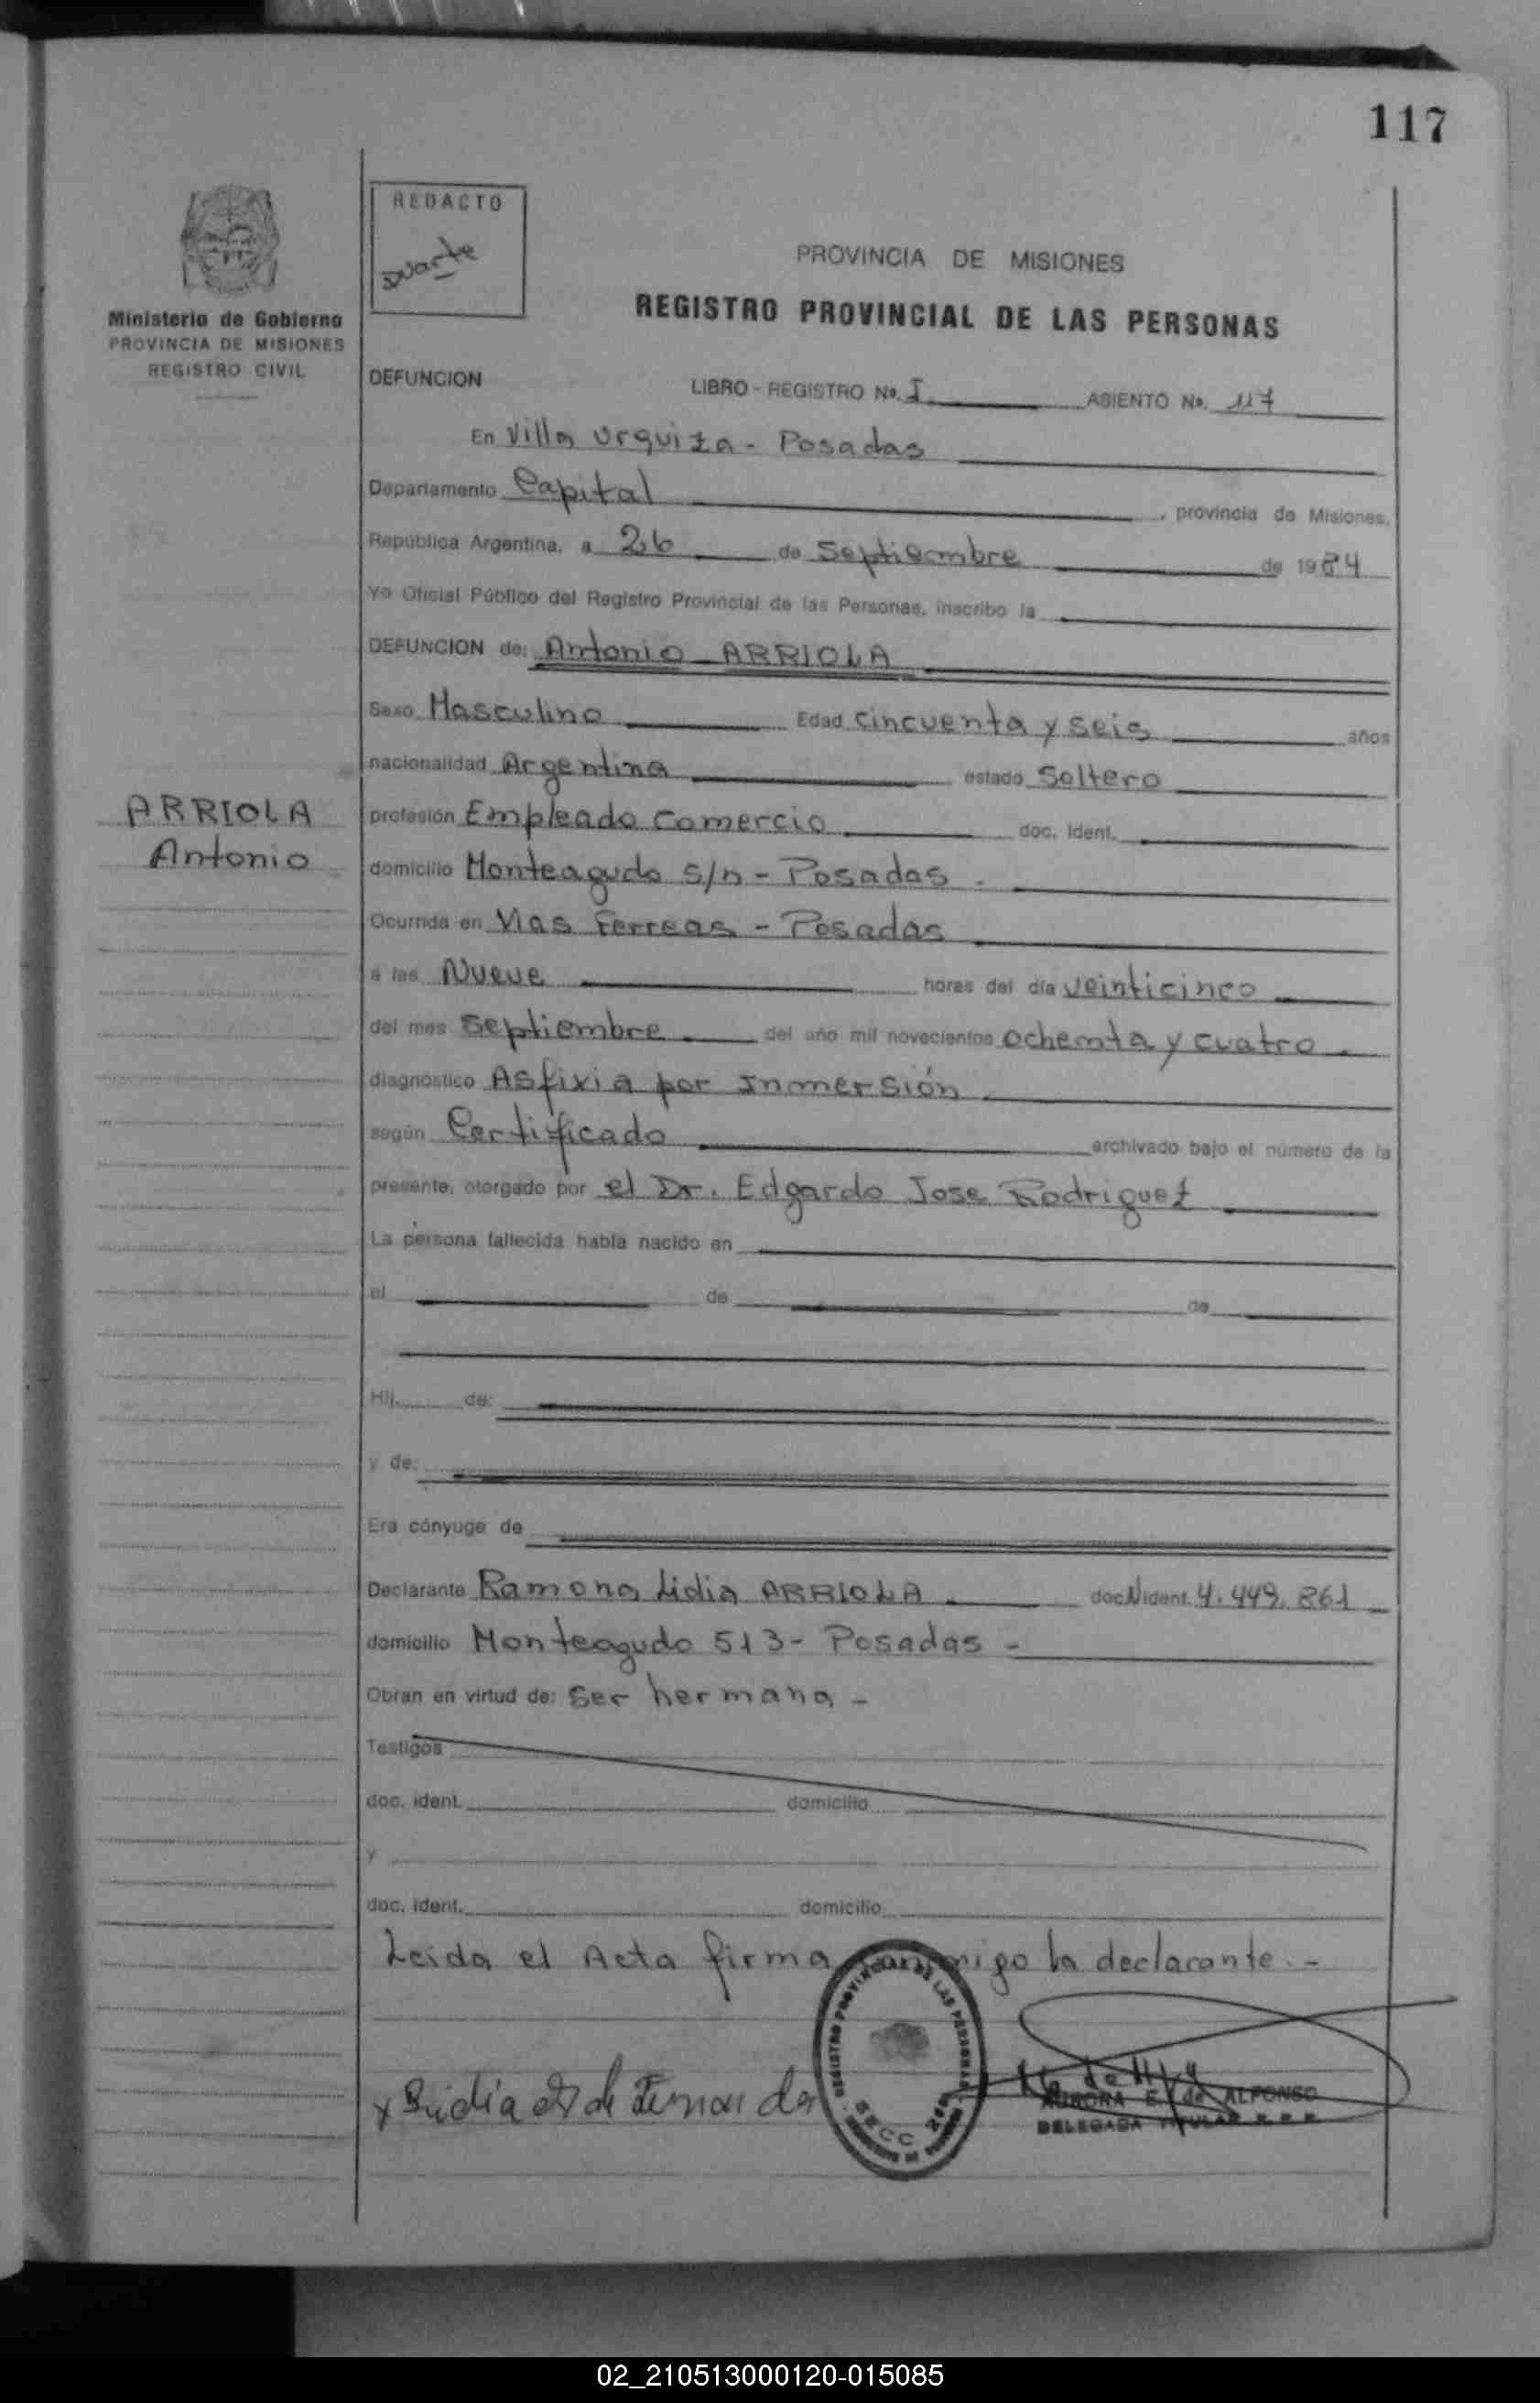 117
REDACTO
Duarte
Ministerio de Gobierno
PROVINCIA DE MISIONES
REGISTRO CIVIL
PROVINCIA DE MISIONES
REGISTRO PROVINCIAL DE LAS PERSONAS
DEFUNCION LIBRO - REGISTRO No. I ASIENTO No. 117
En Villa Urquiza - Posadas
Departamento Capital, provincia de Misiones,
República Argentina, a 26 de Septiembre de 1984
Yo Oficial Público del Registro Provincial de las Personas, inscribo la
DEFUNCION de: Antonio ARRIOLA
Sexo Masculino Edad Cincuenta y seis años
nacionalidad Argentina estado Soltero
ARRIOLA
Antonio
profesión Empleado Comercio doc. ident.
domicilio Monteagudo S/n - Posadas.
Ocurrida en Vias Ferreas - Posadas
a las Nueve horas del día veinticinco
del mes Septiembre del año mil novecientos ochenta y cuatro.
diagnóstico Asfixia por Inmersión
según Certificado archivado bajo el número de la
presente, otorgado por el Dr. Edgardo Jose Rodriguez
La persona fallecida había nacido en
el de de
Hij de:
y de:
Era cónyuge de
Declarante Ramona Lidia ARRIOLA doc. Nident. 4.449.861
domicilio Monteagudo 513 - Posadas -
Obran en virtud de: Ser hermana -
Testigos
doc. ident. domicilio
y
doc. ident. domicilio
Leida el Acta firma conmigo la declarante. -
REGISTRO PROVINCIAL DE LAS PERSONAS
SECC
AURORA E. de ALFONSO
DELEGADA TITULAR R. P. P.
02_210513000120-015085